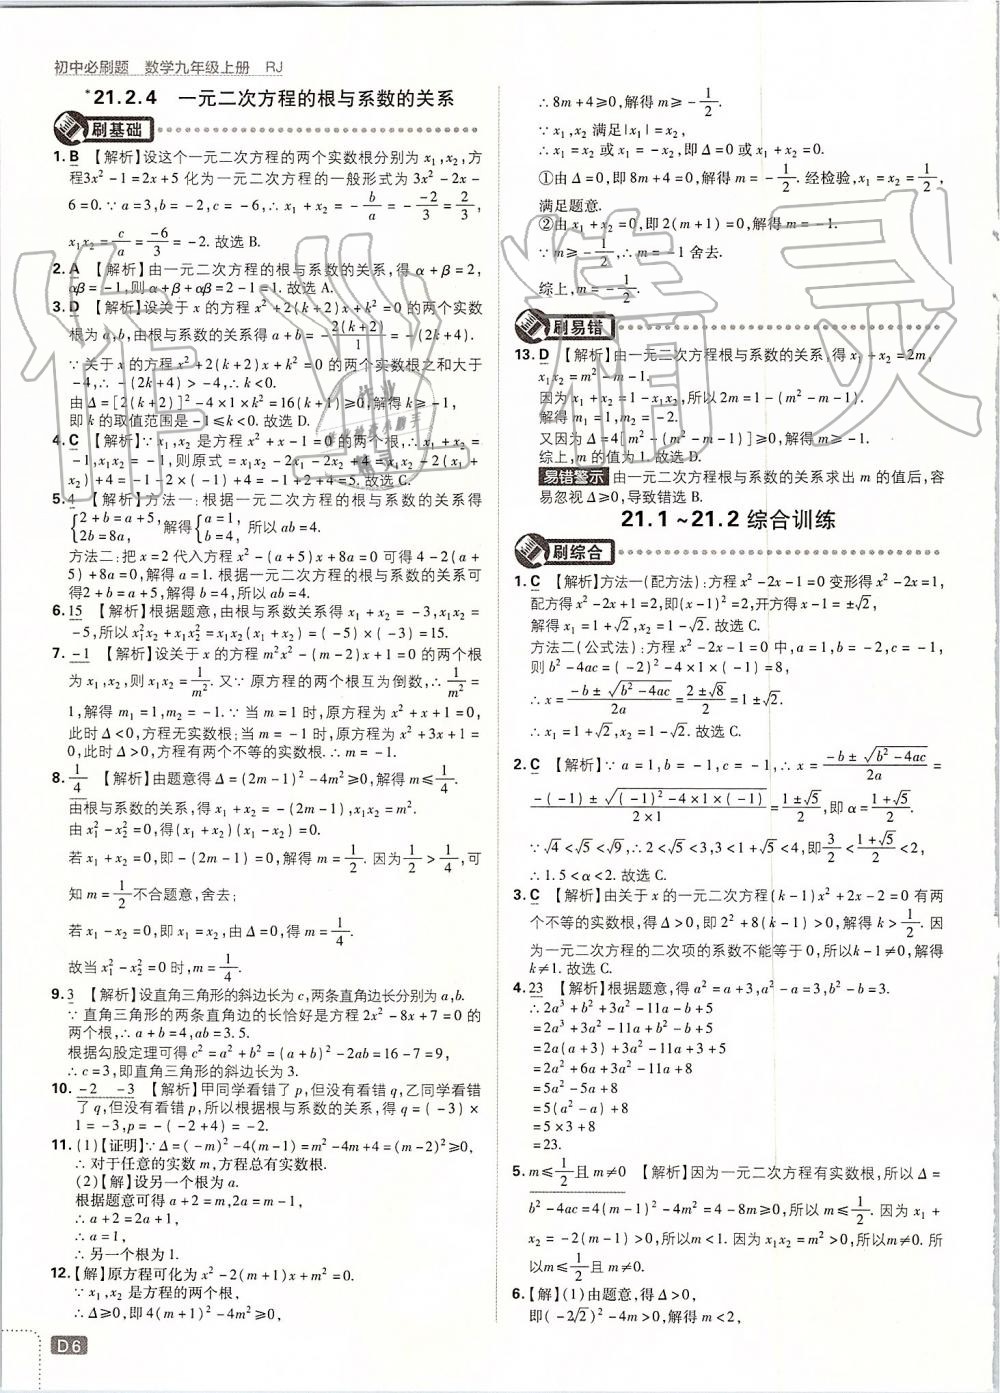 初中必刷题　数学九年级上册　RJ
*21.2.4　一元二次方程的根与系数的关系
刷基础
1. B　【解析】设这个一元二次方程的两个实数根分别为 x₁,x₂,方
程3x²-1=2x+5 化为一元二次方程的一般形式为 3x²-2x-
6=0.∵a=3,b=-2,c=-6,∴x₁+x₂=-b/a=-(-2)/3=2/3,
x₁x₂=c/a=-6/3=-2.故选 B.
2. A　【解析】由一元二次方程的根与系数的关系,得 α+β=2,
αβ=-1,则α+β+αβ=2-1=1.故选 A.
3. D　【解析】设关于 x 的方程 x²+2(k+2)x+k²=0 的两个实数
根为 a,b,由根与系数的关系得 a+b=-2(k+2)/1=-(2k+4).
∵关于 x 的方程 x²+2(k+2)x+k²=0 的两个实数根之和大于
-4,∴-(2k+4)>-4,∴k<0.
由 Δ=[2(k+2)]²-4×1×k²=16(k+1)≥0,解得 k≥-1,
即 k 的取值范围是-1≤k<0.故选 D.
4. C　【解析】∵x₁,x₂ 是方程 x²+x-1=0 的两个根,∴x₁+x₂=
-1,x₁x₂=-1,则原式=x₁x₂-2x₁-2x₂+4=x₁x₂-2(x₁+
x₂)+4=-1-2×(-1)+4=-1+2+4=5.故选 C.
5. 4　【解析】方法一:根据一元二次方程的根与系数的关系得
{2+b=a+5, 2b=8a, 解得{a=1, b=4, 所以 ab=4.
方法二:把 x=2 代入方程 x²-(a+5)x+8a=0 可得 4-2(a+
5)+8a=0,解得 a=1.根据一元二次方程的根与系数的关系可
得2+b=a+5,解得 b=4,所以 ab=4.
6. 15　【解析】根据题意,由根与系数关系得 x₁+x₂=-3,x₁x₂=
-5,所以 x₁²x₂+x₁x₂²=x₁x₂(x₁+x₂)=(-5)×(-3)=15.
7. -1　【解析】设关于 x 的方程 m²x²-(m-2)x+1=0 的两个根
为 x₁,x₂,则 x₁x₂=1/m².又∵原方程的两个根互为倒数,∴1/m²=
1,解得 m₁=1,m₂=-1.∵当 m=1 时,原方程为 x²+x+1=0,
此时 Δ<0,方程无实数根;当 m=-1 时,原方程为 x²+3x+1=
0,此时 Δ>0,方程有两个不等的实数根.∴m=-1.
8. 1/4　【解析】由题意得 Δ=(2m-1)²-4m²≥0,解得 m≤1/4.
由根与系数的关系,得 x₁+x₂=-(2m-1),x₁x₂=m².
由 x₁²-x₂²=0,得(x₁+x₂)(x₁-x₂)=0.
若 x₁+x₂=0,即-(2m-1)=0,解得 m=1/2.因为1/2>1/4,可
知 m=1/2不合题意,舍去;
若 x₁-x₂=0,即 x₁=x₂,由 Δ=0,得 m=1/4.
故当 x₁²-x₂²=0 时,m=1/4.
9. 3　【解析】设直角三角形的斜边长为 c,两条直角边长分别为 a,b.
∵直角三角形的两条直角边的长恰好是方程 2x²-8x+7=0 的
两个根,∴a+b=4,ab=3.5.
根据勾股定理可得 c²=a²+b²=(a+b)²-2ab=16-7=9,
∴c=3,即直角三角形的斜边长为 3.
10. -2　-3　【解析】甲同学看错了 p,但没有看错 q,乙同学看错
了 q,但没有看错 p,所以根据根与系数的关系,得 q=(-3)×
1=-3,p=-(-2+4)=-2.
11. (1)【证明】∵Δ=(-m)²-4(m-1)=m²-4m+4=(m-2)²≥0,
∴对于任意的实数 m,方程总有实数根.
(2)【解】设另一个根为 a.
根据题意可得 a+2=m,2a=m-1,
∴a+2=2a+1,
∴a=1,
∴另一个根为 1.
12.【解】原方程可化为 x²-2(m+1)x+m²=0.
∵x₁,x₂ 是方程的两个根,
∴Δ≥0,即 4(m+1)²-4m²≥0,
∴8m+4≥0,解得 m≥-1/2.
∵x₁,x₂ 满足|x₁|=x₂,
∴x₁=x₂ 或 x₁=-x₂,即 Δ=0 或 x₁+x₂=0.
①由 Δ=0,即 8m+4=0,解得 m=-1/2.经检验,x₁=x₂=1/2,
满足题意.
②由 x₁+x₂=0,即 2(m+1)=0,解得 m=-1.
∵m≥-1/2,∴m=-1 舍去.
综上,m=-1/2.
刷易错
13. D　【解析】由一元二次方程根与系数的关系,得 x₁+x₂=2m,
x₁x₂=m²-m-1.
因为 x₁+x₂=1-x₁x₂,所以 2m=1-(m²-m-1).
解得 m₁=1,m₂=-2.
又因为 Δ=4[m²-(m²-m-1)]≥0,解得 m≥-1.
综上,m 的值为 1.故选 D.
易错警示　由一元二次方程根与系数的关系求出 m 的值后,容
易忽视 Δ≥0,导致错选 B.
21.1~21.2 综合训练
刷综合
1. C　【解析】方法一(配方法):方程 x²-2x-1=0 变形得 x²-2x=1,
配方得 x²-2x+1=2,即(x-1)²=2,开方得 x-1=±√2,
解得 x₁=1+√2,x₂=1-√2.故选 C.
方法二(公式法):方程 x²-2x-1=0 中,a=1,b=-2,c=-1,
则 b²-4ac=(-2)²-4×1×(-1)=8,
∴x=(-b±√(b²-4ac))/2a=(2±√8)/2=1±√2.
∴x₁=1+√2,x₂=1-√2.故选 C.
2. C　【解析】∵a=1,b=-1,c=-1,∴x=(-b±√(b²-4ac))/2a=
(-(-1)±√((-1)²-4×1×(-1)))/(2×1)=(1±√5)/2,即 α=(1+√5)/2.
∵√4<√5<√9,∴2<√5<3,3<1+√5<4,即 3/2<(1+√5)/2<2,
∴1.5<α<2.故选 C.
3. C　【解析】由关于 x 的一元二次方程(k-1)x²+2x-2=0 有两
个不等的实数根,得 Δ>0,即 2²+8(k-1)>0,解得 k>1/2.因
为一元二次方程的二次项的系数不能等于 0,所以k-1≠0,解得
k≠1.故选 C.
4. 23　【解析】根据题意,得 a²=a+3,b²=b+3,
∴2a³+b²+3a²-11a-b+5
=2a³+3a²-11a+b²-b+5
=2a(a+3)+3a²-11a+3+5
=2a²+6a+3a²-11a+8
=5a²-5a+8
=5(a²-a)+8
=5×3+8
=23.
5. m≤1/2且 m≠0　【解析】因为一元二次方程有实数根,所以 Δ=
b²-4ac=4(m-1)²-4m²=4-8m≥0,所以 m≤1/2.因为 x₁+
x₂=-2(m-1)>0,所以m<1.因为 x₁x₂=m²>0,所以m≠0.所
以m≤1/2且 m≠0.
6.【解】(1)由题意,得 Δ>0,
即(-2√2)²-4m>0,解得 m<2,
D6